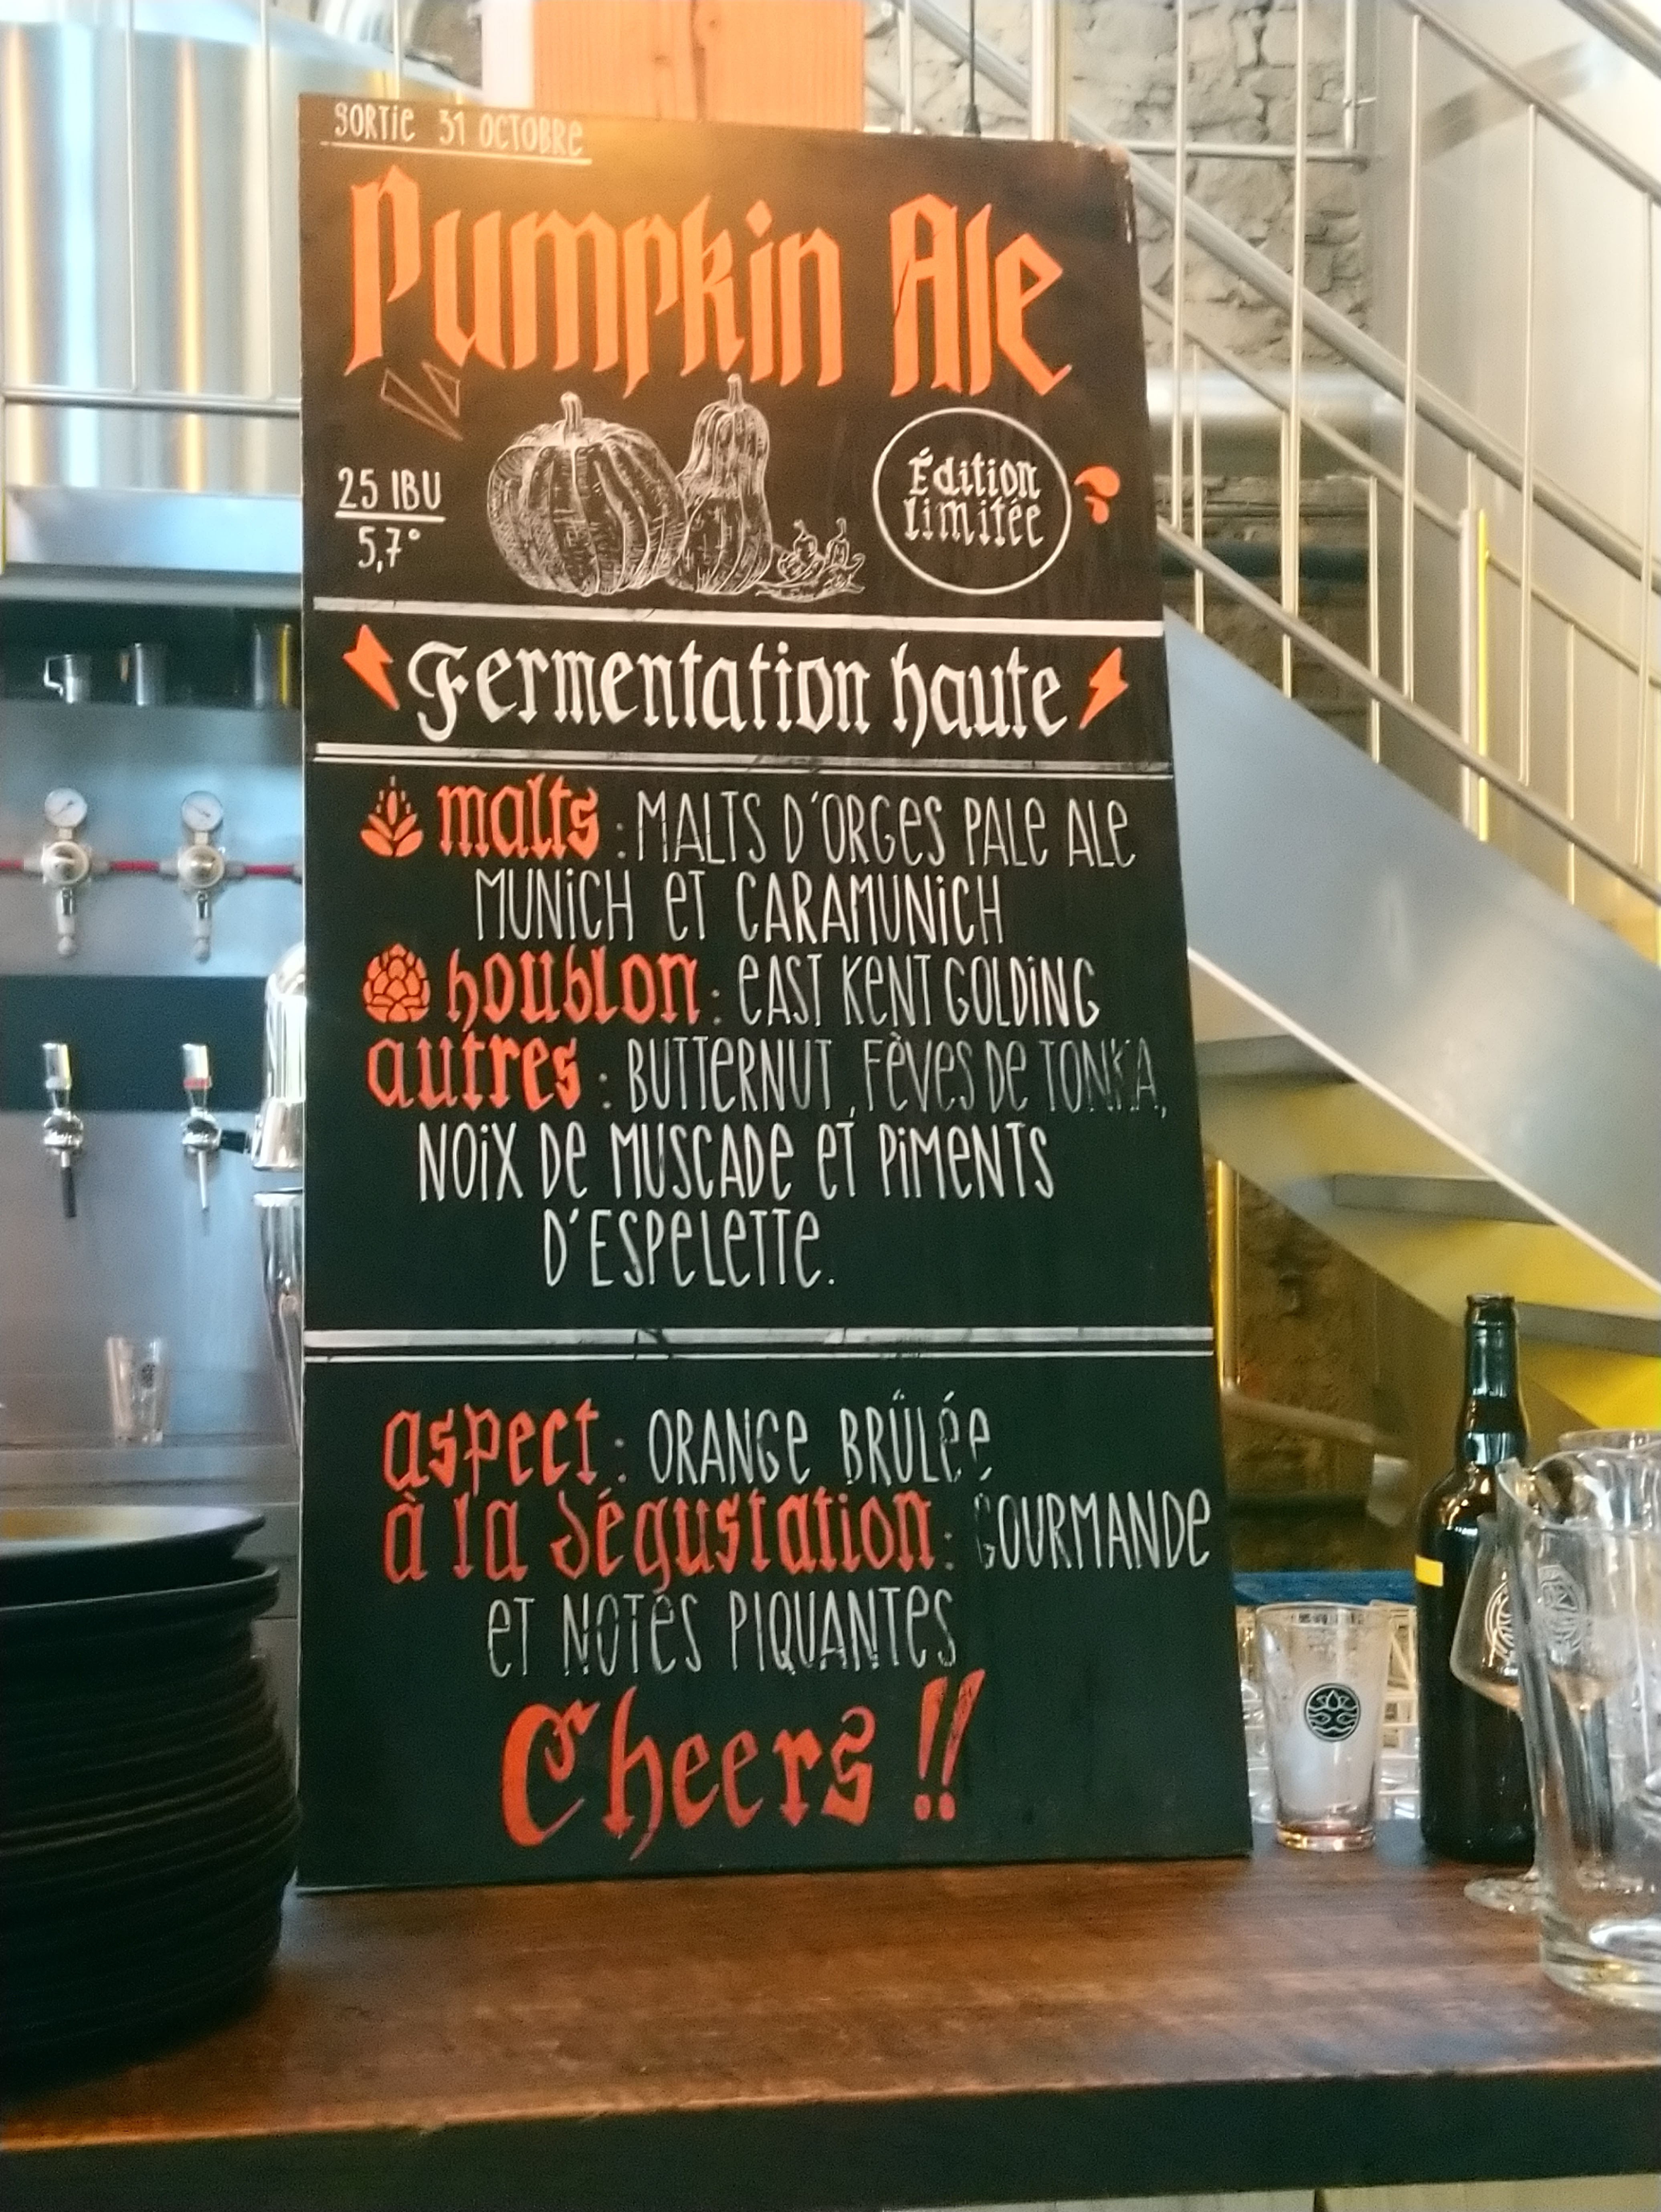 SORTIE 31 OCTOBRE
Pumpkin Ale
25 IBU
5,7°
Édition
limitée
Fermentation haute
malts : MALTS D'ORGES PALE ALE
MUNICH ET CARAMUNICH
houblon : EAST KENT GOLDING
autres : BUTTERNUT, FÈVES DE TONKA,
NOIX DE MUSCADE ET PIMENTS
D'ESPELETTE.
aspect : ORANGE BRÛLÉE
à la dégustation : GOURMANDE
ET NOTES PIQUANTES
Cheers !!